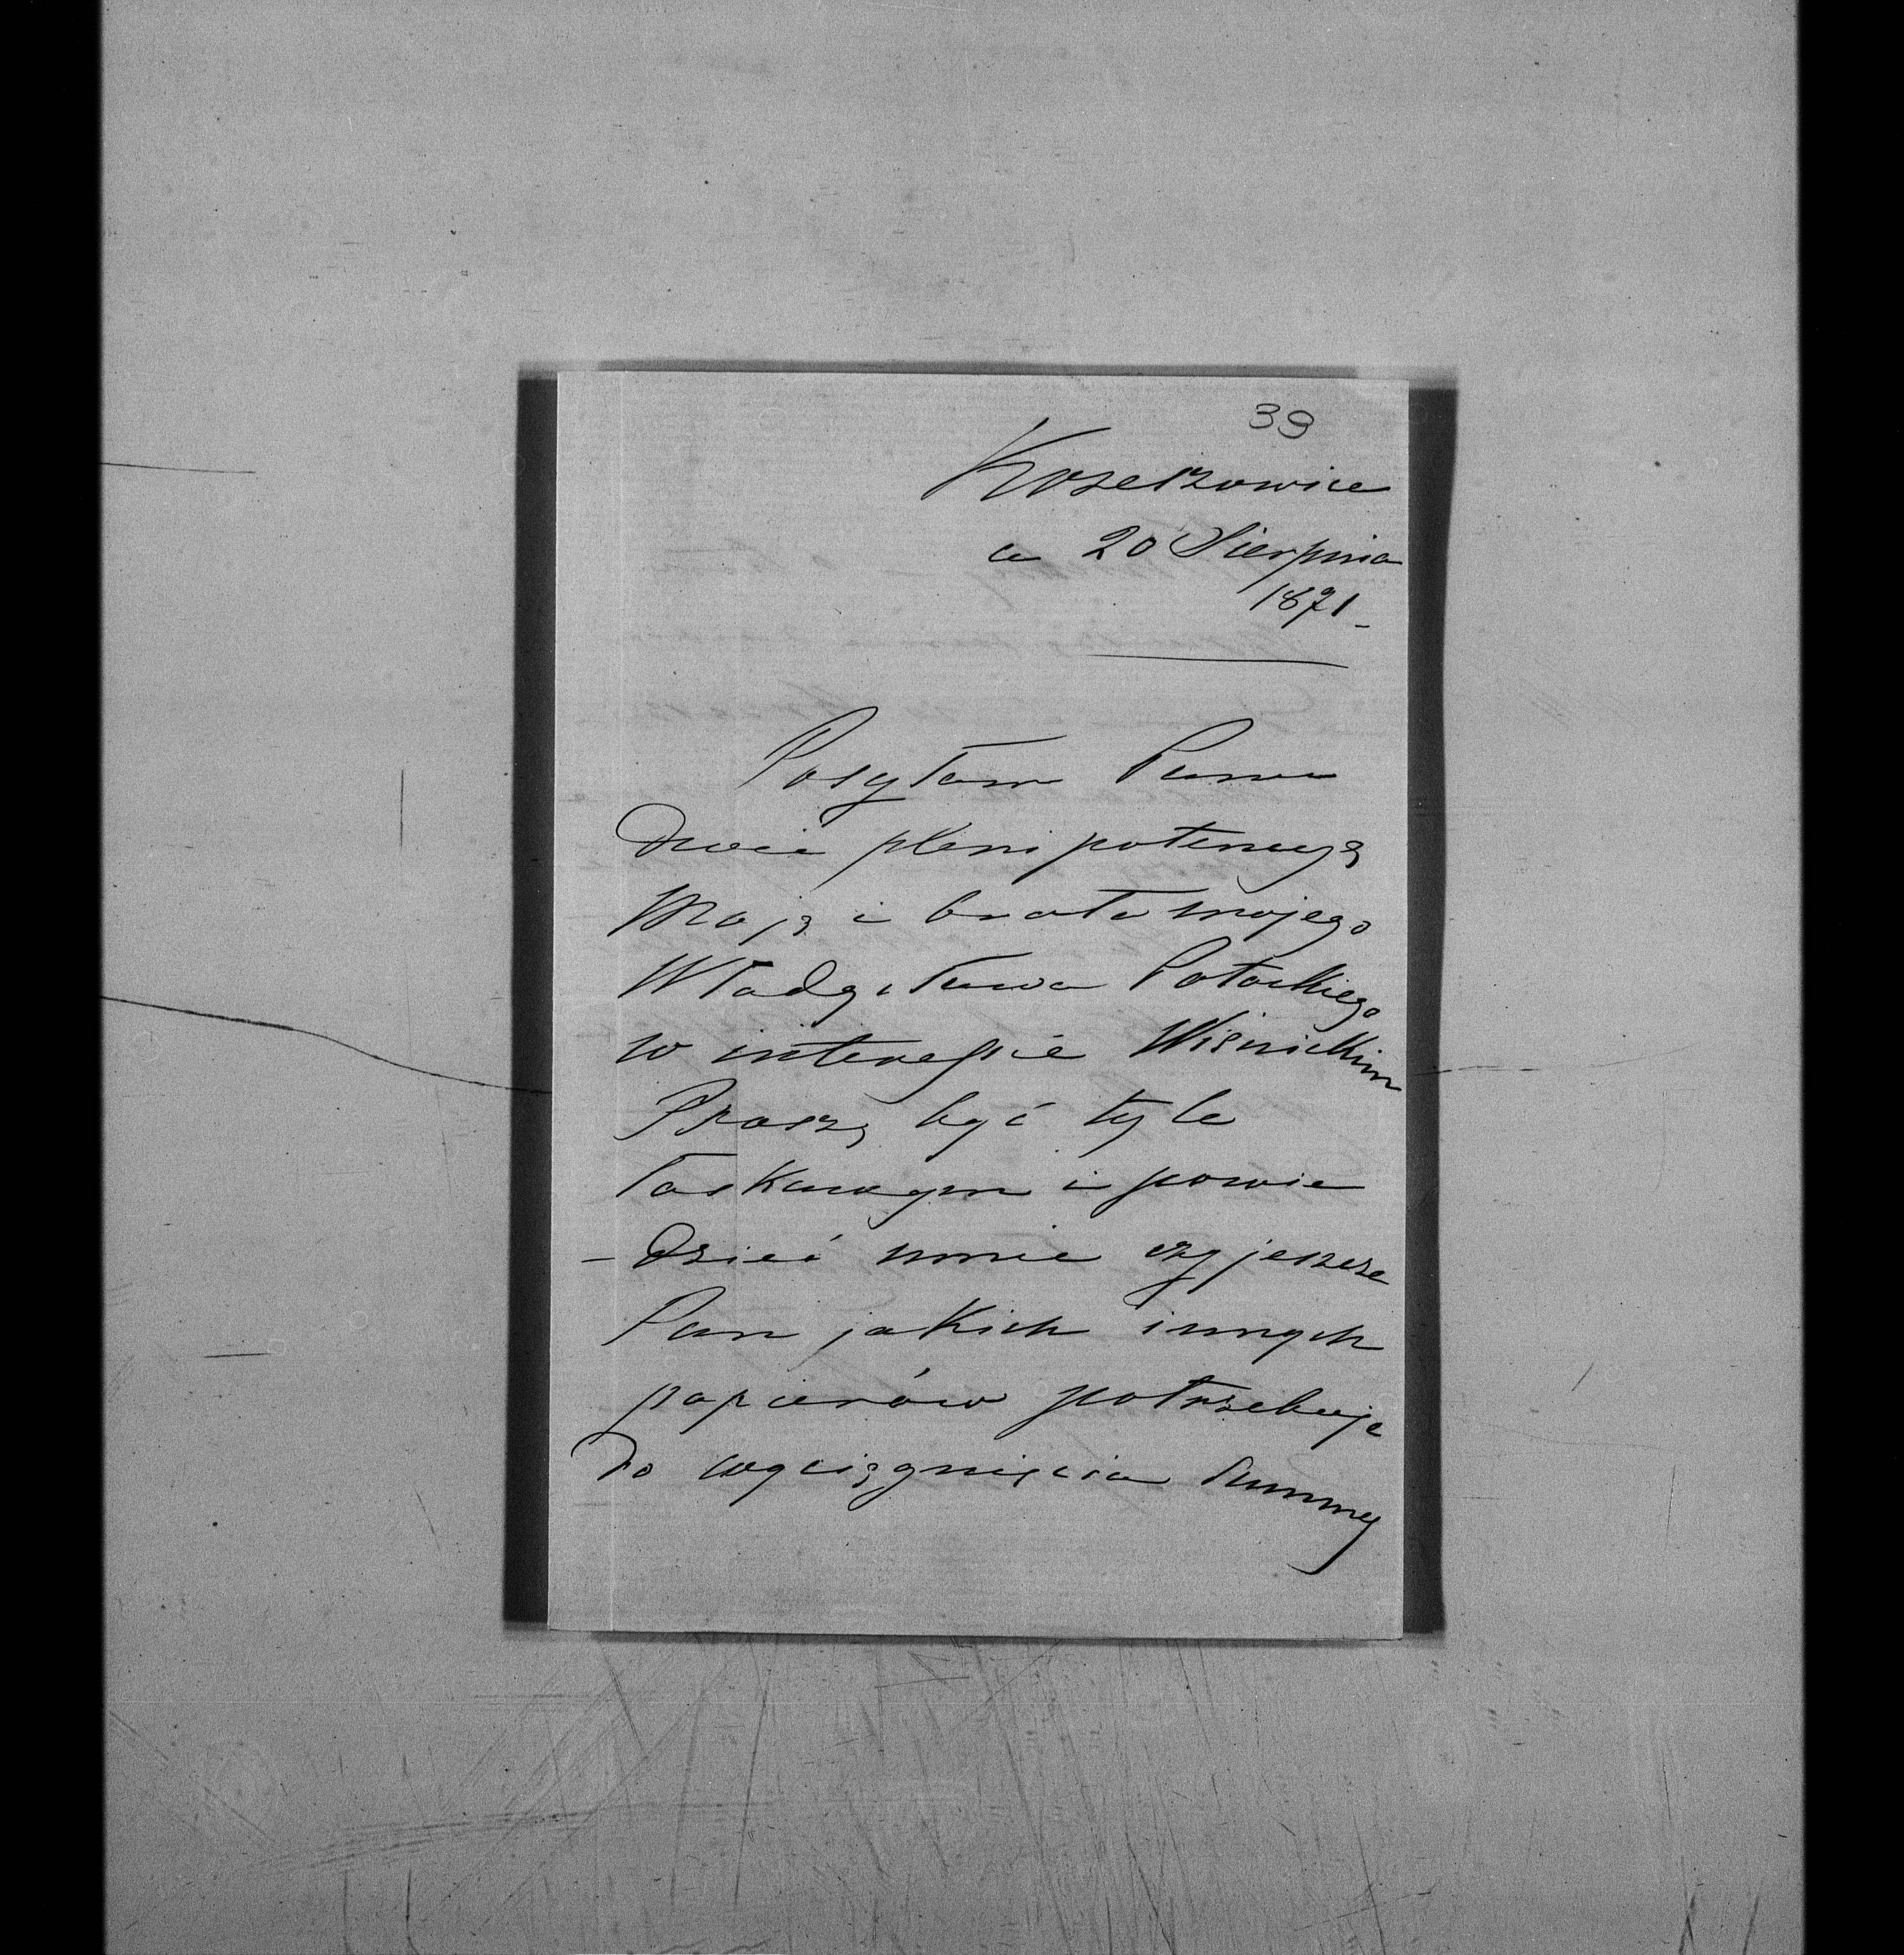 39
Krzeszowice
a 20 Sierpnia
1871 -
Posyłam Panu
Dwie plenipotencyą
Moją i brata mojego
Władysława Potockiego
w interessie Wiśnickim
Proszę być tyle
łaskawym i powie
- dzieć mnie czy jeszcze
Pan jakich innych
papierów potrzebuje
Do wyciągnięcia Summy